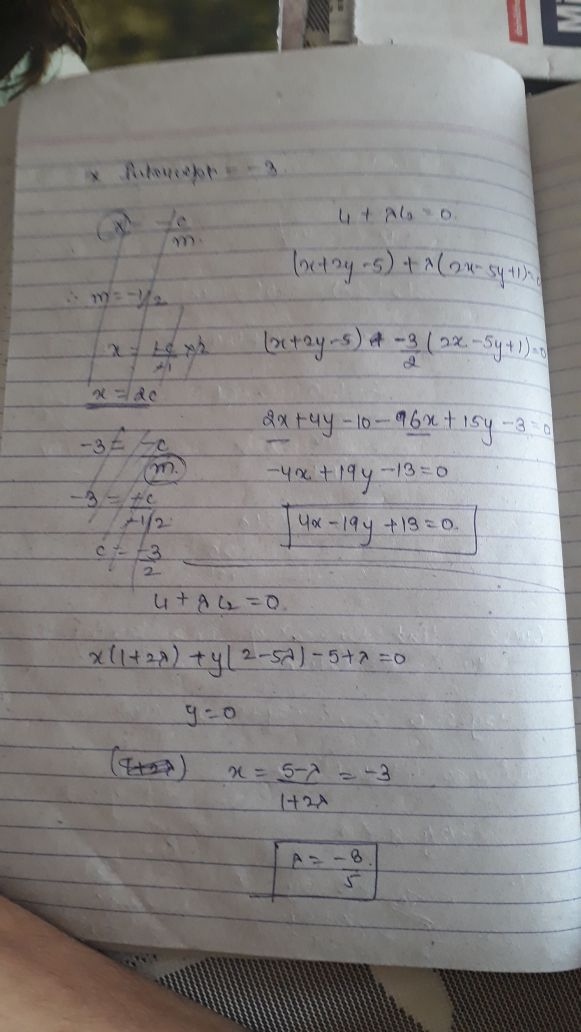 x Intercept = -3
x = -c/m
∴ m = -1/2
x = +c/+1 × 2
x = 2c
-3 = -c/m
-3 = +c/+1/2
c = -3/2
L1 + λL2 = 0.
(x+2y-5) + λ(2x-5y+1)=0
(x+2y-5) + -3/2 (2x-5y+1)=0
2x+4y-10-6x+15y-3=0
-4x+19y-13=0
4x-19y+13=0.
L1 + λL2 = 0.
x(1+2λ) + y(2-5λ) - 5+λ = 0
y=0
(1+2λ) x = 5-λ/1+2λ = -3
λ = -8/5